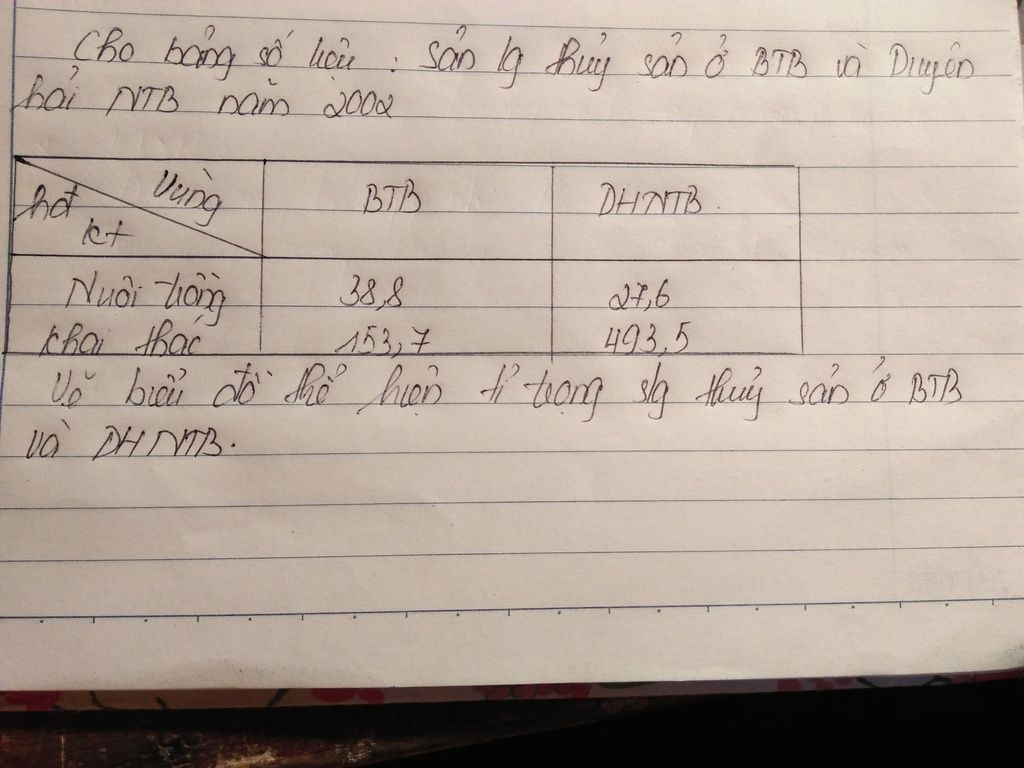 Cho bảng số liệu : sản lg thuỷ sản ở BTB và Duyên
hải NTB năm 2002
Vùng
hđ
kt
BTB
DHNTB.
Nuôi trồng 38,8 27,6
Khai thác 153,7 493,5
Vẽ biểu đồ thể hiện tỉ trọng slg thuỷ sản ở BTB
và DHNTB.